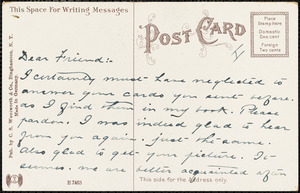 This Space For Writing Messages
POST CARD
Place Stamp Here
Domestic One cent
Foreign Two cents
Dear Friend:-
I certainly must have neglected to
answer your cards you sent before,
as I find them in my book. Please
pardon. I was indeed glad to hear
from you again - just the same.
Also glad to get your picture. It
seems we are better acquainted after
This side for the address only.
Pub. by C. S. Woolworth & Co., Binghamton, N. Y.